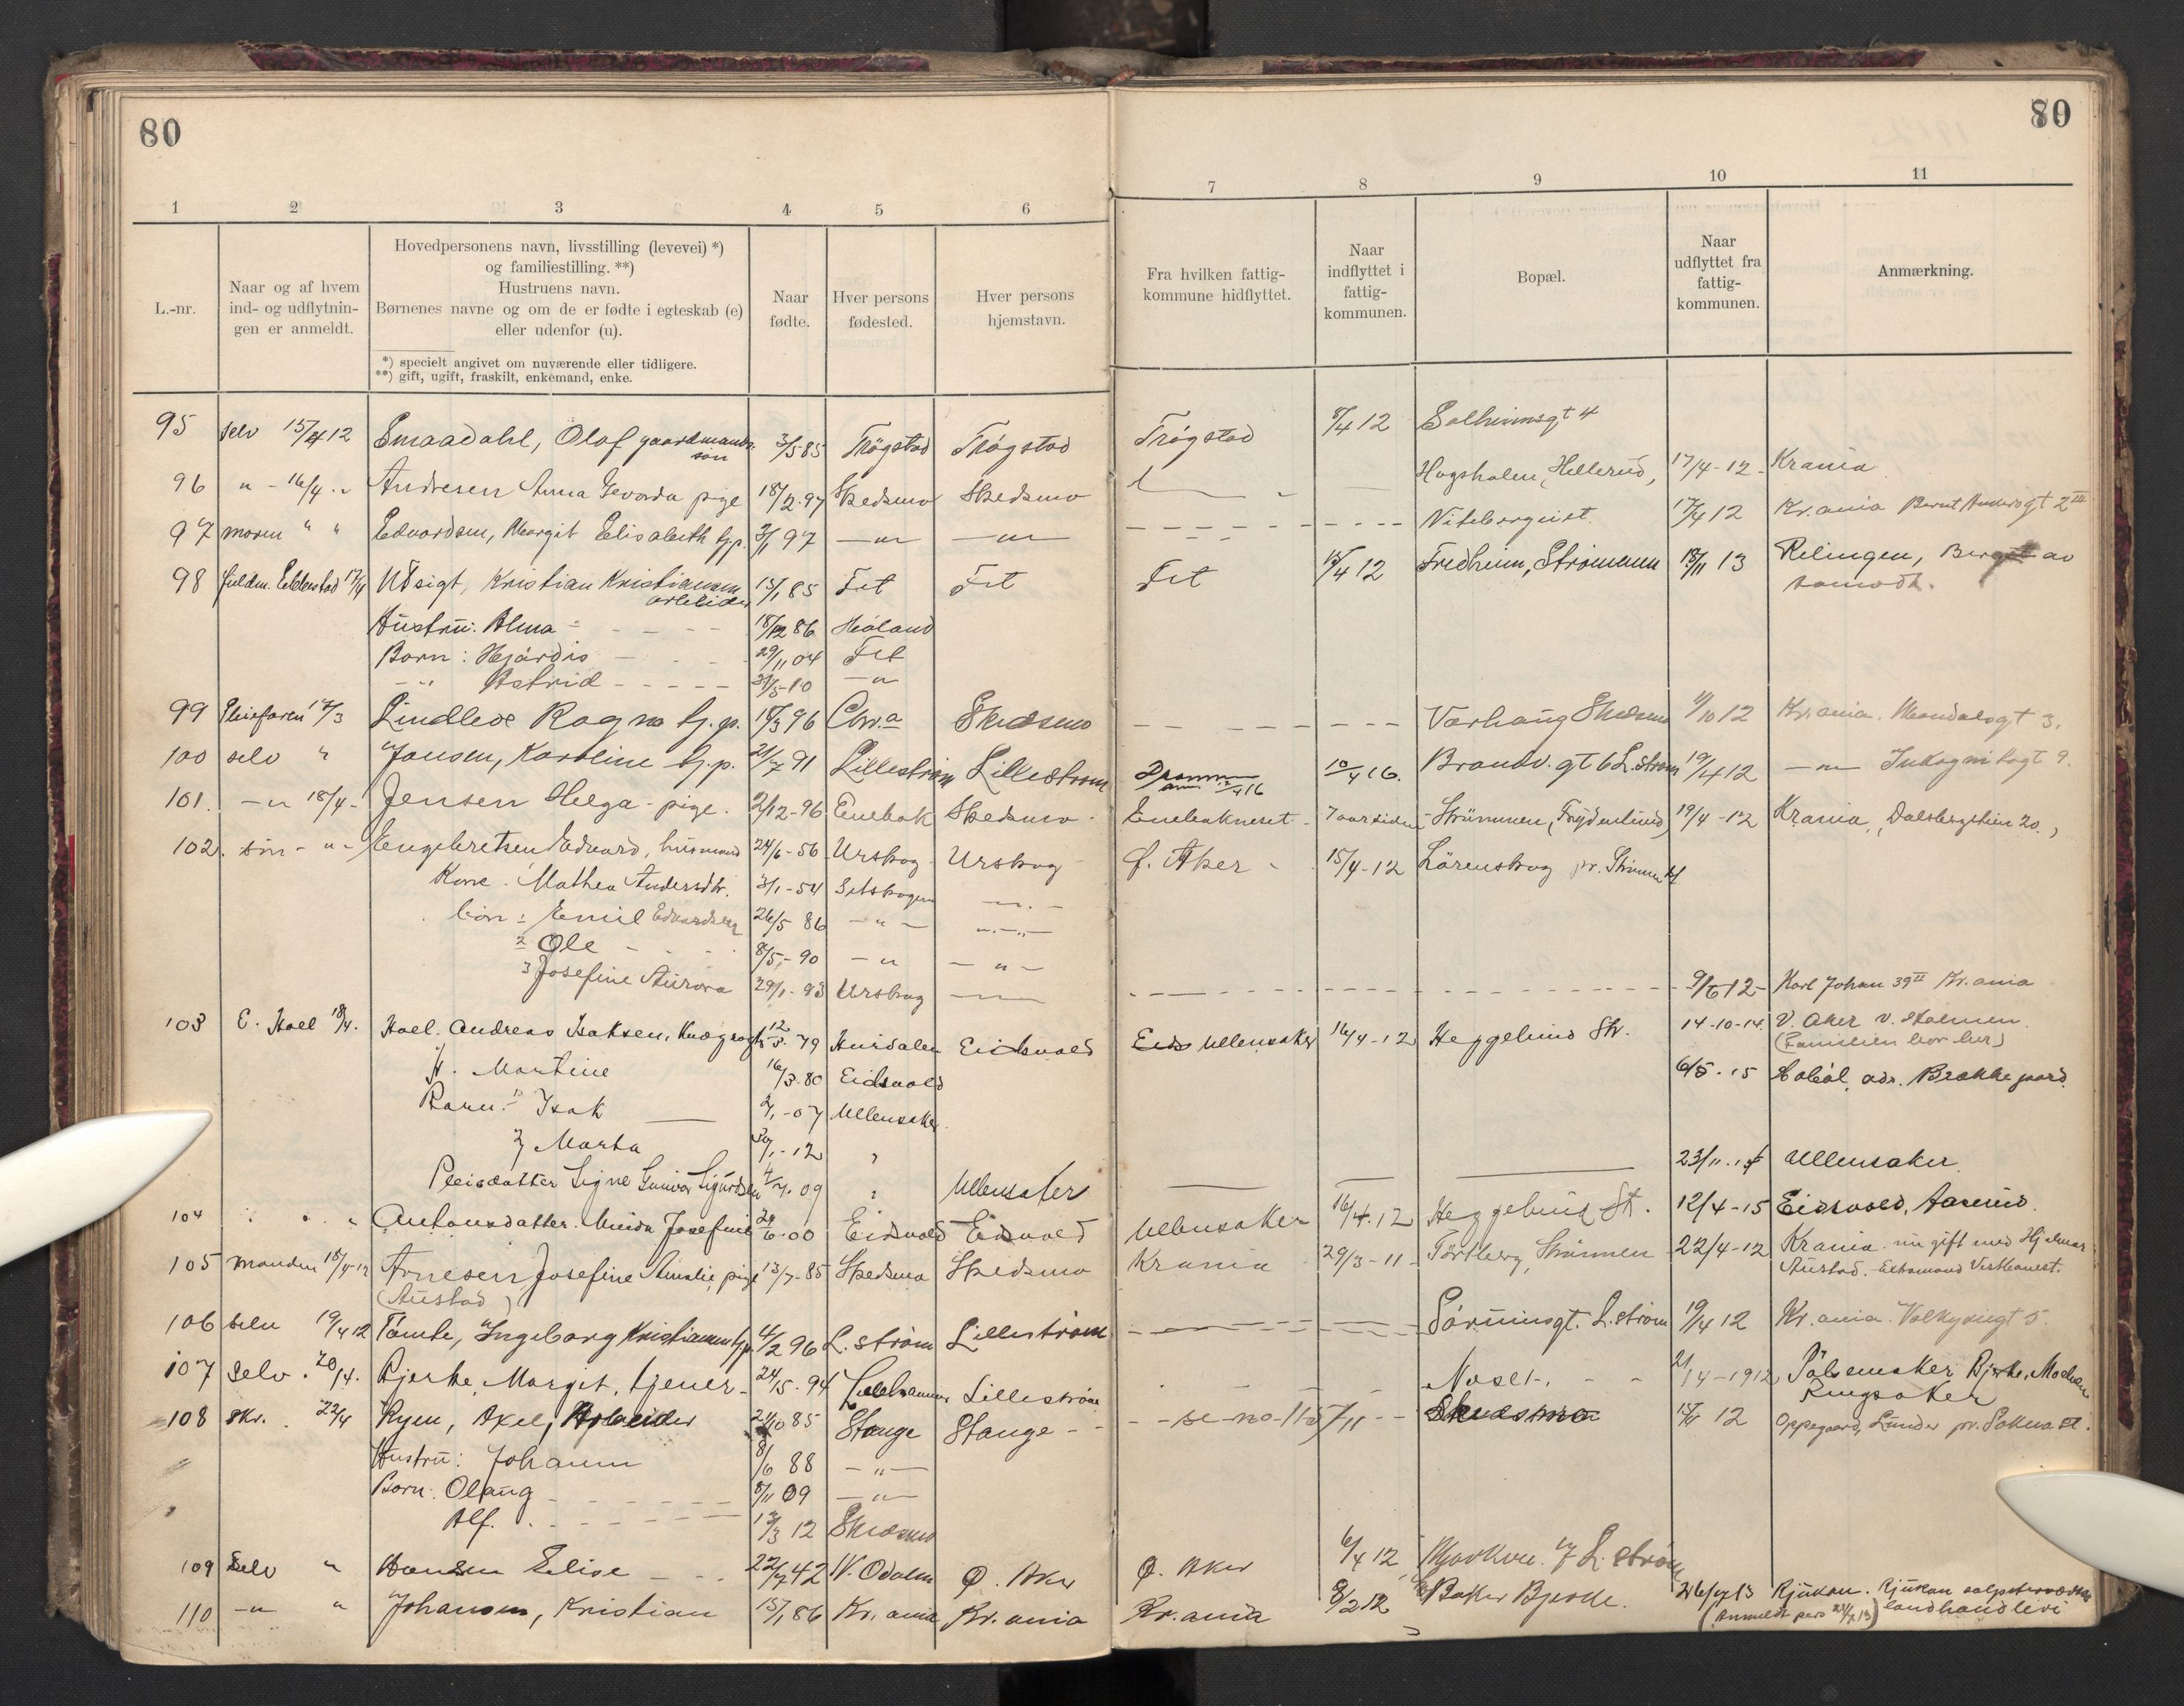 80
80
1 2 3 4 5 6 7 8 9 10 11
L.-nr.
Naar og af hvem
ind- og udflytnin-
gen er anmeldt.
Hovedpersonens navn, livsstilling (levevei) *)
og familiestilling. **)
Hustruens navn.
Børnenes navne og om de er fødte i egteskab (e)
eller udenfor (u).
*) specielt angivet om nuværende eller tidligere.
**) gift, ugift, fraskilt, enkemand, enke.
Naar
fødte.
Hver persons
fødested.
Hver persons
hjemstavn.
Fra hvilken fattig-
kommune hidflyttet.
Naar
indflyttet i
fattig-
kommunen.
Bopæl.
Naar
udflyttet fra
fattig-
kommunen.
Anmærkning.
95 selv 15/4 12 Smaadahl, Olaf gaardmands- 3/5 85 Trøgstad Trøgstad Trøgstad 8/4 12 Solheimsgt 4
søn
96 " - 16/4 " Andresen Anna pige 18/12-97 Skedsmo Skedsmo Hagshalen, Hellerud, 17/4-12- Krania
97 moren " " Edvardsen, Margit Elisabeth tj.p. 3/1 97 —"— —"— Nitebergiet. 17/4 12 Kr.ania
98 17/4 Udsigt, Kristian Kristiansen 13/1 85 Fet Fet Fet 12/4 12 Fredheim, Strømmen 18/11 13 Relingen, av
arbeider
Hustru: Alma 18/12 86 Høland
Børn: Hjørdis 29/11 04 Fet
" Astrid 31/5-10 —"
99 17/3 Lindløv Ragna tj.p. 18/3 96 Chr.a Skedsmo Værhaug Skedsmo 11/10 12 Kr.ania. Mandalsgt 3.
100 selv " Jansen, Karoline tj.p. 21/7 91 Lillestrøm Lillestrøm Drammen 10/4 16. Brandv. gt 6 L.strøm 19/4 12 —"— Inkognitogt 9.
101. —" 18/4- Jensen Helga - pige. 2/12-96 Enebak Skedsmo Enebakneset 7 aar siden Strømmen, 19/4-12 Krania, Dalsbergstien 20.
102. søn - " - Engebretsen Edvard, husmand 24/6-56 Urskog Urskog Ø. Aker 15/4-12 Lørenskog pr. Strømmen st
Kone. Mathea Andersdtr. 3/1-54 Setskogen —"—
børn: 1 Emil Edvardsen 26/5 86 —"— —"—
2 Ole 8/5-90 —" —"—
3 Josefine Aurora 29/1-93 Urskog 9/6 12- Karl Johan 39 II Kr.ania
103 E. Hoel 18/4. Hoel. Andreas Isaksen, 12/3.79 Hurdalen Eidsvold Ullensaker 16/4-12 Heggelund St. 14-10-14. V. Aker v. Holmen
(Familien bor her)
H. Martine 16/3.80 Eidsvold 6/5.15 Hobøl, adr. Brække gaard.
Barn: 1) Isak 2/1-07 Ullensaker
2) Marta 30/1-12 "
Pleiedatter Signe Gunvor Sigurdsen 4/7.09 " Ullensaker 23/11.14 Ullensaker.
104 " " " Antonsdatter. Minda Josefine 24/6.00 Eidsvold Eidsvold Ullensaker 16/4.12 Heggelund St. 12/4-15 Eidsvold, Aaserud.
105 manden 18/4-12 Arnesen Josefine Amalie, pige 13/7-85 Skedsmo Skedsmo Krania 29/3-11- Tørtberg, Strømmen 22/4-12 Krania nu gift med Hjalmar
(Austad) Austad.
106 selv 19/4 12 Tømte, Ingeborg Kristiansen tj.p. 4/2 96 L.strøm Lillestrøm Sørumsgt. L.strøm 19/4 12 Kr.ania. Valkyriegt 5.
107 Selv. 20/4. Bjerke, Margit, tjener- 24/5.94 Lillehammer Lillestrøm Næset-, 21/4-1912 Bjerke, Moelven
Ringsaker
108 skr. 22/4 Ryen, Axel, Arbeider 21/10 85 Stange Stange se no 115/11 Skedsmo 15/5 12 Oppegaard, Lunder pr. Sokna st.
Hustru: Johanne 8/6 88 —"—
Børn: Olaug 8/11 09 —"—
Alf. 13/3 12 Skedsmo
109 Selv " Hansen Elise 22/7 42 N. Odalen Ø. Aker Ø. Aker 6/4 12 L.strøm
110 —" " Johansen, Kristian 15/1 86 Kr.ania Kr.ania Kr.ania 8/2 12 Baker Bjerke. 26/7 13 Rjukan. Rjukan
(Anmeldt pers 23/7 13) landhandleri